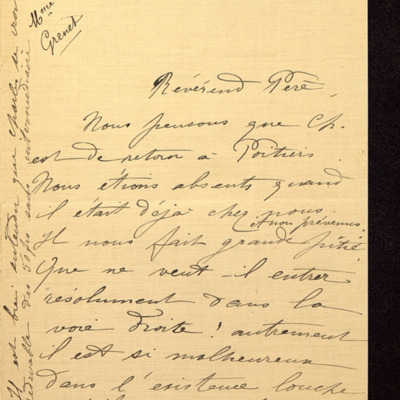 Mme
Grenet
Révérend Père,
Nous pensons que Ch.
est de retour à Poitiers.
Nous étions absents quand
il était déjà chez nous
et non prévenus.
Il nous fait grande pitié.
Que ne veut-il entrer
résolument dans la
voie droite! autrement
il est si malheureux
dans l'existence louche
Il est bien entendu que Charles se
des 50 frs sans intermédiaire